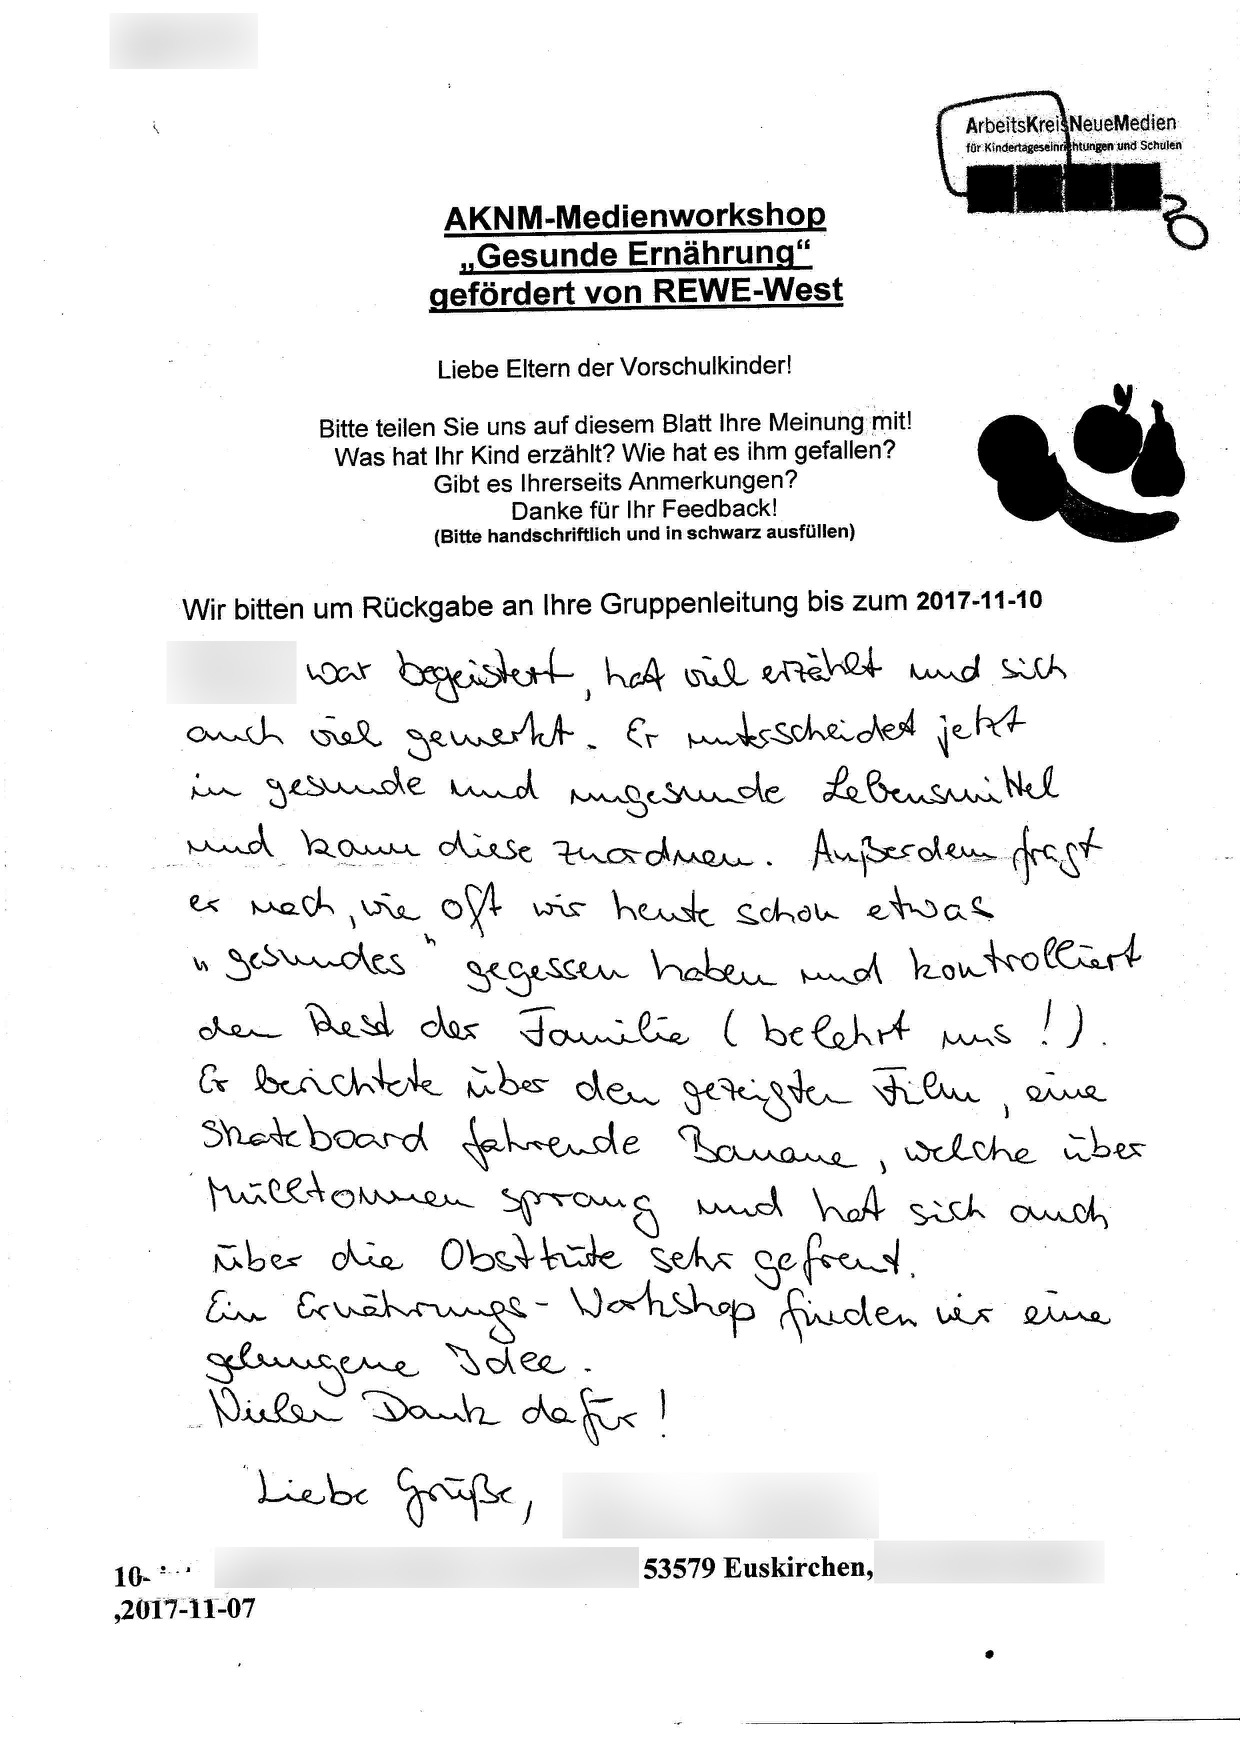 ArbeitsKreisNeueMedien
für Kindertageseinrichtungen und Schulen
AKNM-Medienworkshop
„Gesunde Ernährung“
gefördert von REWE-West
Liebe Eltern der Vorschulkinder!
Bitte teilen Sie uns auf diesem Blatt Ihre Meinung mit!
Was hat Ihr Kind erzählt? Wie hat es ihm gefallen?
Gibt es Ihrerseits Anmerkungen?
Danke für Ihr Feedback!
(Bitte handschriftlich und in schwarz ausfüllen)
Wir bitten um Rückgabe an Ihre Gruppenleitung bis zum 2017-11-10
war begeistert, hat viel erzählt und sich
auch viel gemerkt. Er unterscheidet jetzt
in gesunde und ungesunde Lebensmittel
und kann diese zuordnen. Außerdem fragt
er nach, wie oft wir heute schon etwas
„gesundes“ gegessen haben und kontrolliert
den Rest der Familie (belehrt uns!).
Er berichtete über den gezeigten Film, eine
Skateboard fahrende Banane, welche über
Mülltonnen sprang und hat sich auch
über die Obsttüte sehr gefreut.
Ein Ernährungs-Workshop finden wir eine
gelungene Idee.
Vielen Dank dafür!
Liebe Grüße,
10- 53579 Euskirchen,
,2017-11-07